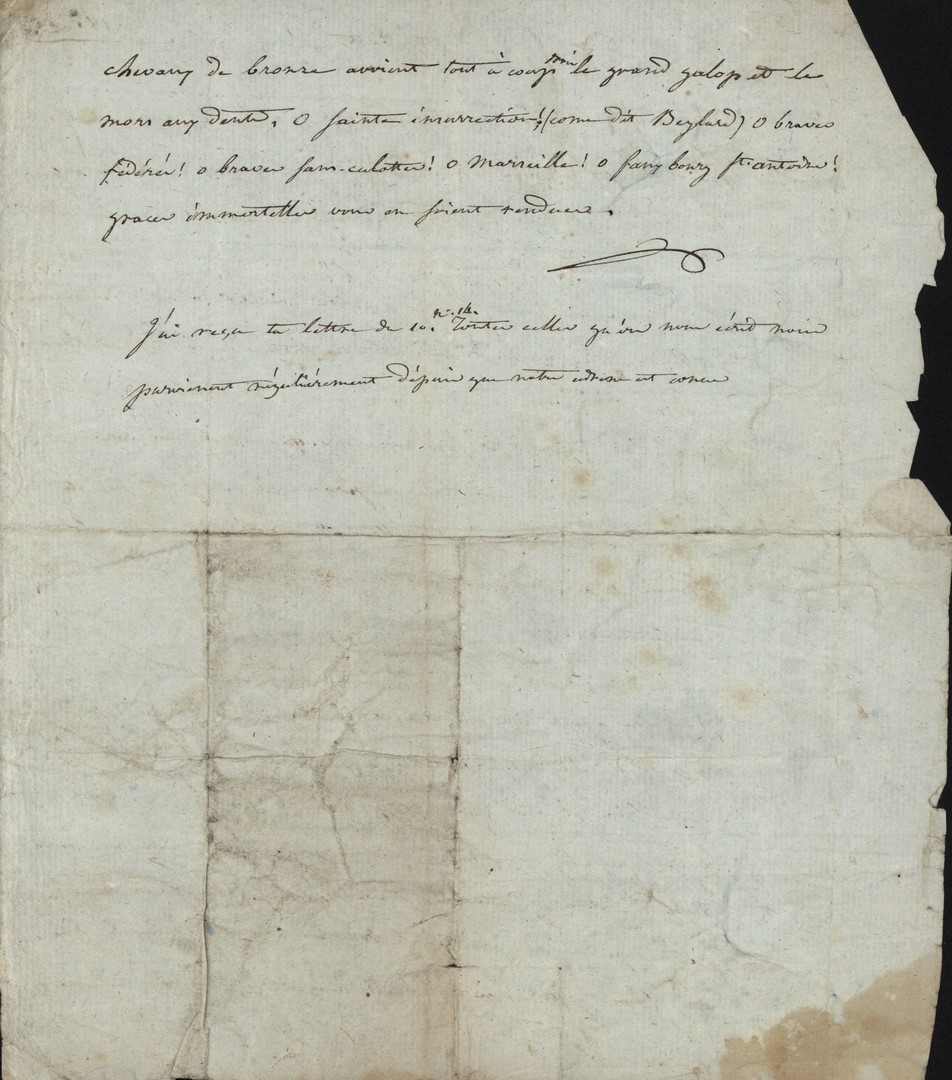 chevaux de bronze avoient tout à coup mis le grand galop et le
mors aux dents. O sainte insurrection! (come dit Beylard) O braves
fédérés! o braves sans-culottes! O Marseille! o fauxbourg st. antoine!
graces immortelles vous en soient rendues.
J'ai reçu ta lettre de 10. n.° 14. Toutes celles qu'on nous écrid nous
parvienent régulièrement dépuis que notre adresse est conue